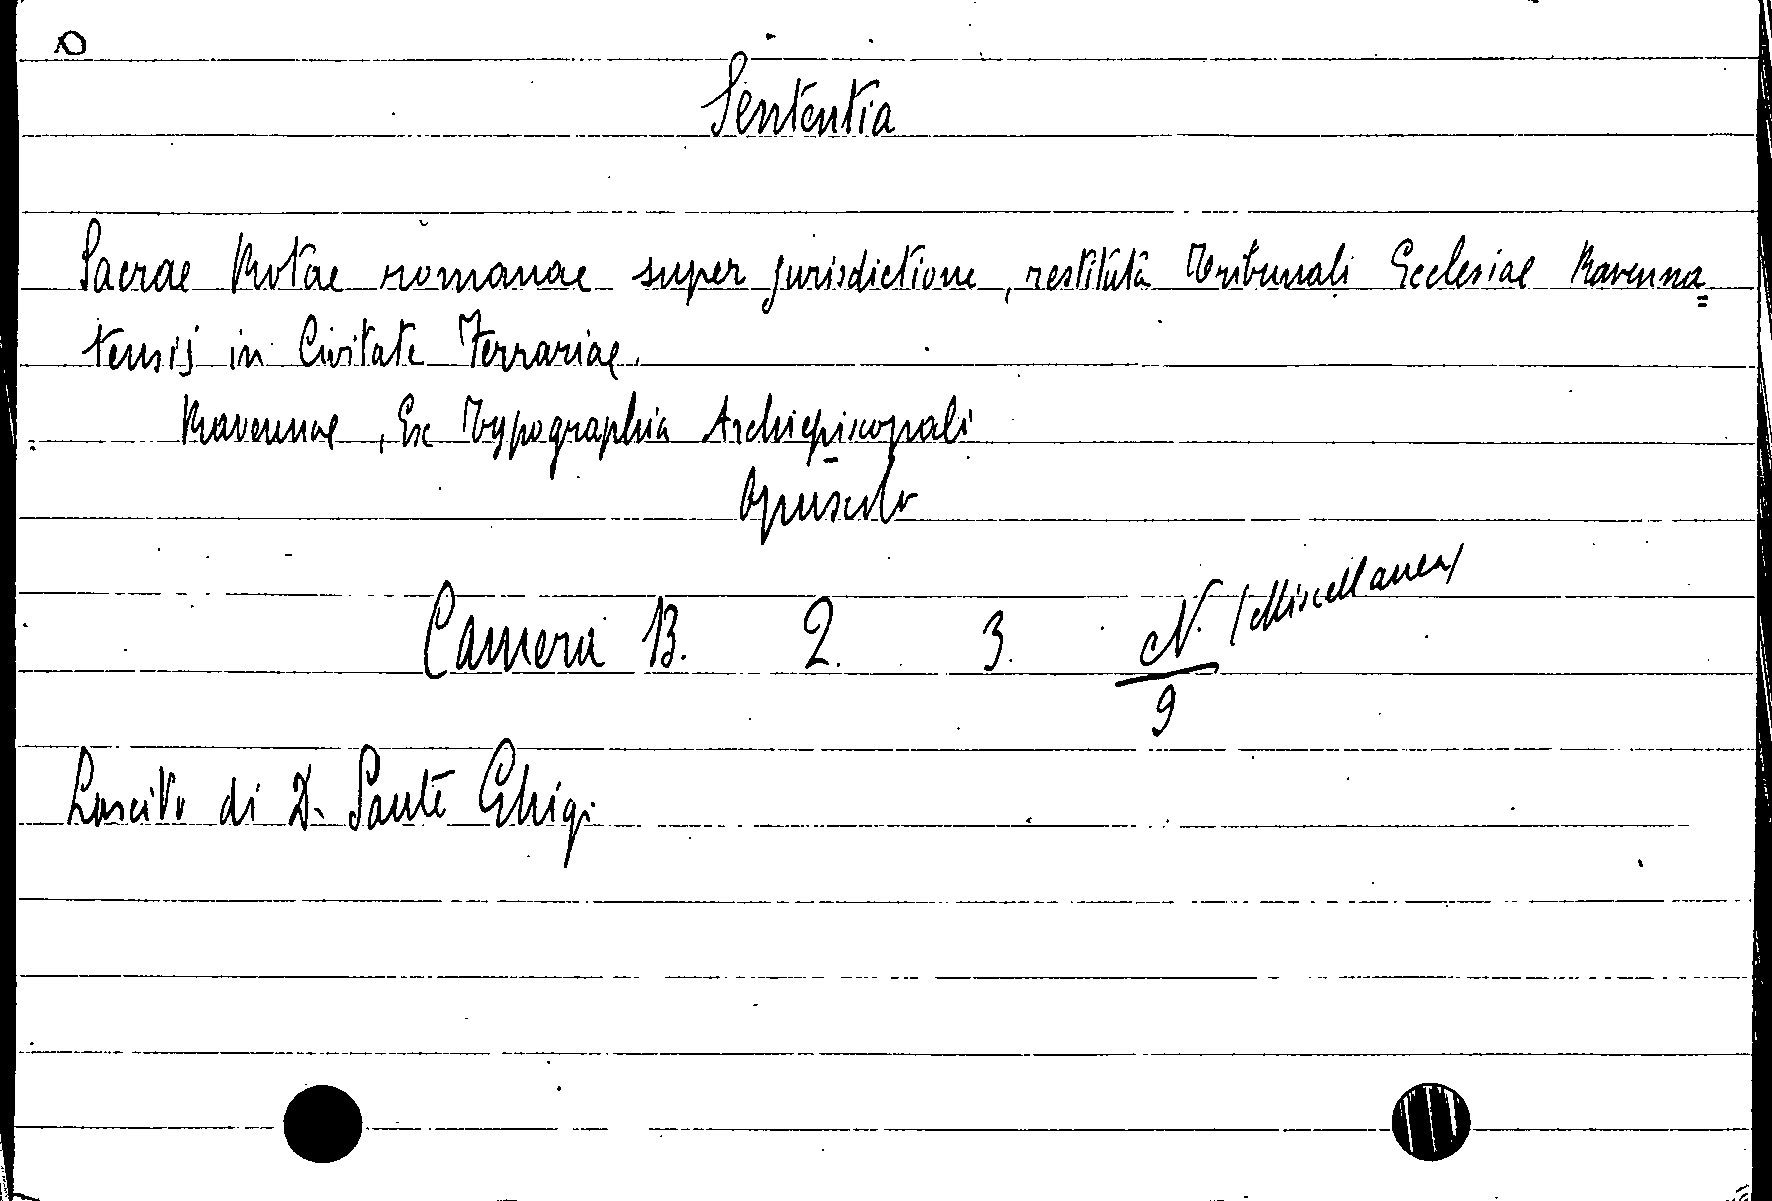 Sententia
Sacrae Rotae romanae super jurisdictione, restitutâ Tribunali Ecclesiae Ravenna=
tensis in Civitate Ferrariae.
Ravennae, Ex Typographia Archiepiscopali
Opuscolo
Camera B. 2. 3. N. (Miscellanea)
9
Lascito di D. Sante Ghigi